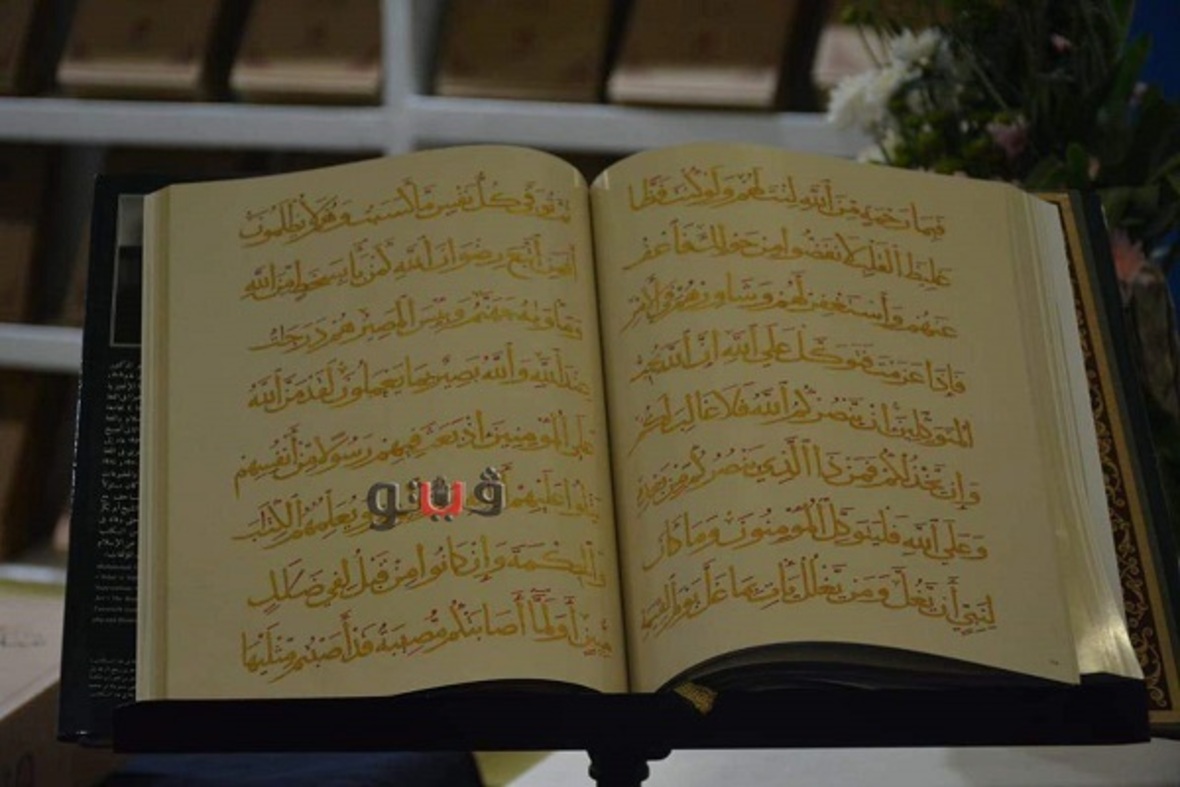 فبما رحمة من الله لنت لهم ولو كنت فظا
غليظ القلب لانفضوا من حولك فاعف
عنهم وأستغفر لهم وشاورهم في الأمر
فإذا عزمت فتوكل على الله إن الله يحب
المتوكلين إن ينصركم الله فلا غالب لكم
وإن يخذلكم فمن ذا الذي ينصركم من بعده
وعلى الله فليتوكل المؤمنون وما كان
لنبي أن يغل ومن يغلل يأت بما غل يوم القيمة
ثم توفى كل نفس ما كسبت وهم لا يظلمون
أفمن أتبع رضوان الله كمن باء بسخط من الله
ومأويه جهنم وبئس المصير هم درجات
عند الله والله بصير بما يعملون لقد من الله
على المؤمنين إذ بعث فيهم رسولا من أنفسهم
يتلوا عليهم ويعلمهم الكتب
والحكمة وإن كانوا من قبل لفي ضلل
مبين أولما أصابتكم مصيبة قد أصبتم مثليها
ڤيتو